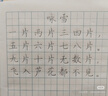 咏雪
一片两片三四片，
五片六片七八片。
九片十片无数片，
飞入芦花都不见。